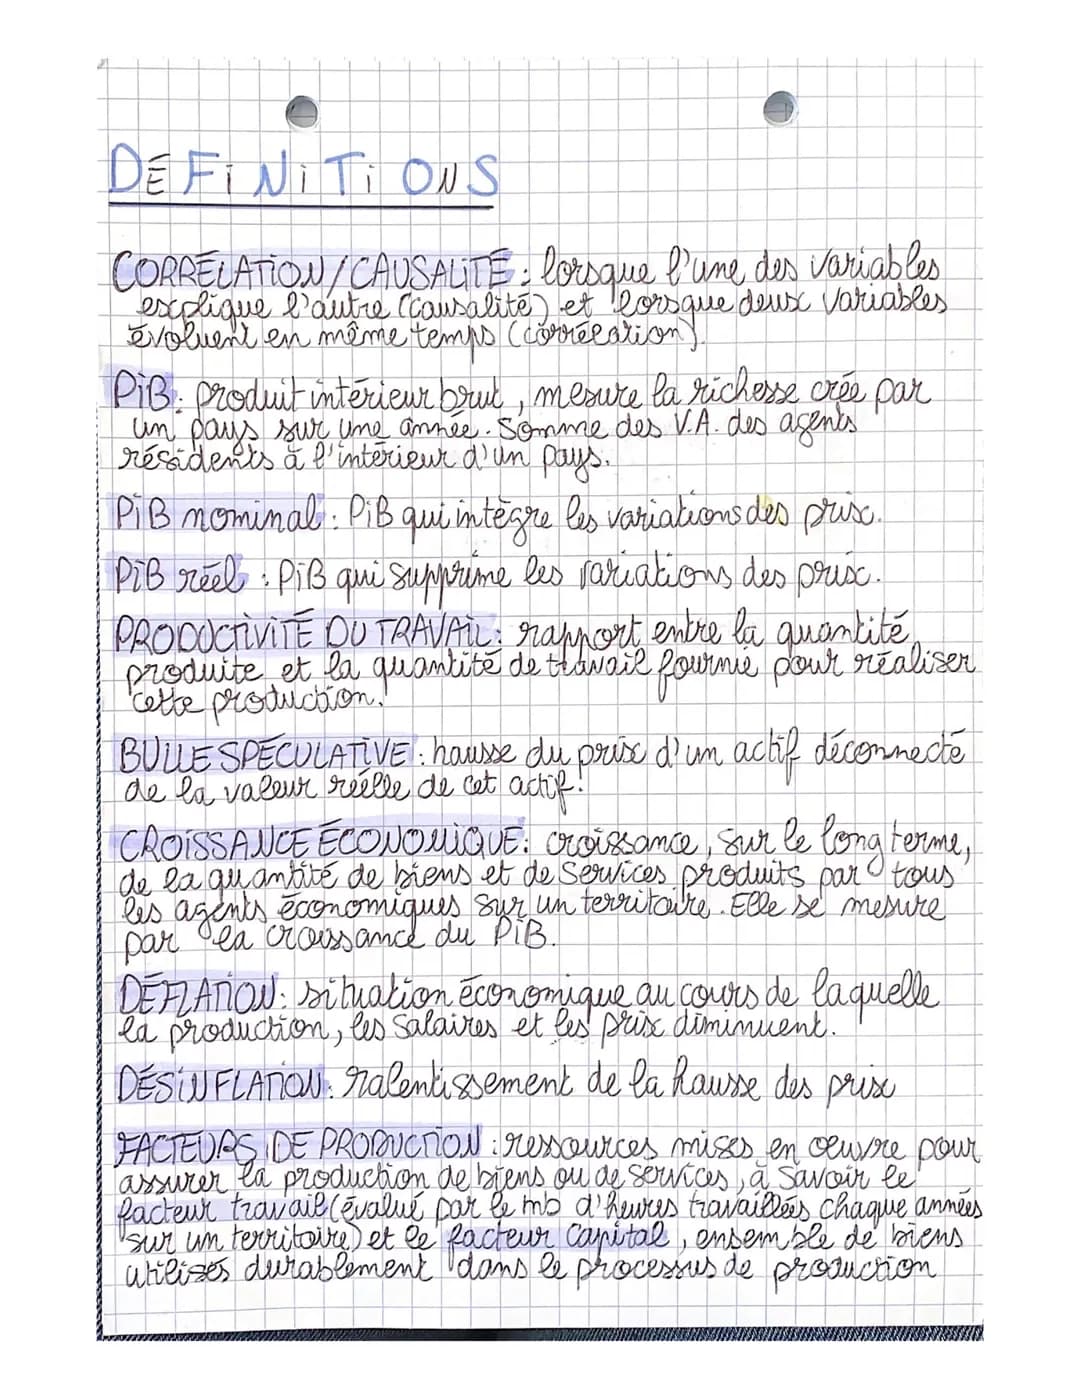 DÉFiNiTiONS
CORRÉLATION/CAUSALITÉ : lorsque l'une des variables
explique l'autre (causalité) et lorsque deux variables
évoluent en même temps (corrélation).
PiB : produit intérieur brut, mesure la richesse crée par
un pays sur une année. Somme des V.A. des agents
résidents à l'intérieur d'un pays.
PiB nominal : PiB qui intègre les variations des prix.
PiB réel : PiB qui supprime les variations des prix.
PRODUCTIVITÉ DU TRAVAIL : rapport entre la quantité
produite et la quantité de travail fournie pour réaliser
cette production.
BULLE SPÉCULATIVE : hausse du prix d'un actif déconnecté
de la valeur réelle de cet actif.
CROISSANCE ÉCONOMIQUE : croissance, sur le long terme,
de la quantité de biens et de services produits par tous
les agents économiques sur un territoire. Elle se mesure
par la croissance du PiB.
DÉFLATION : situation économique au cours de laquelle
la production, les salaires et les prix diminuent.
DÉSINFLATION : ralentissement de la hausse des prix
FACTEURS DE PRODUCTION : ressources mises en oeuvre pour
assurer la production de biens ou de services, à savoir le
facteur travail (évalué par le nb d'heures travaillées chaque années
sur un territoire) et le facteur capital, ensemble de biens
utilisés durablement dans le processus de production